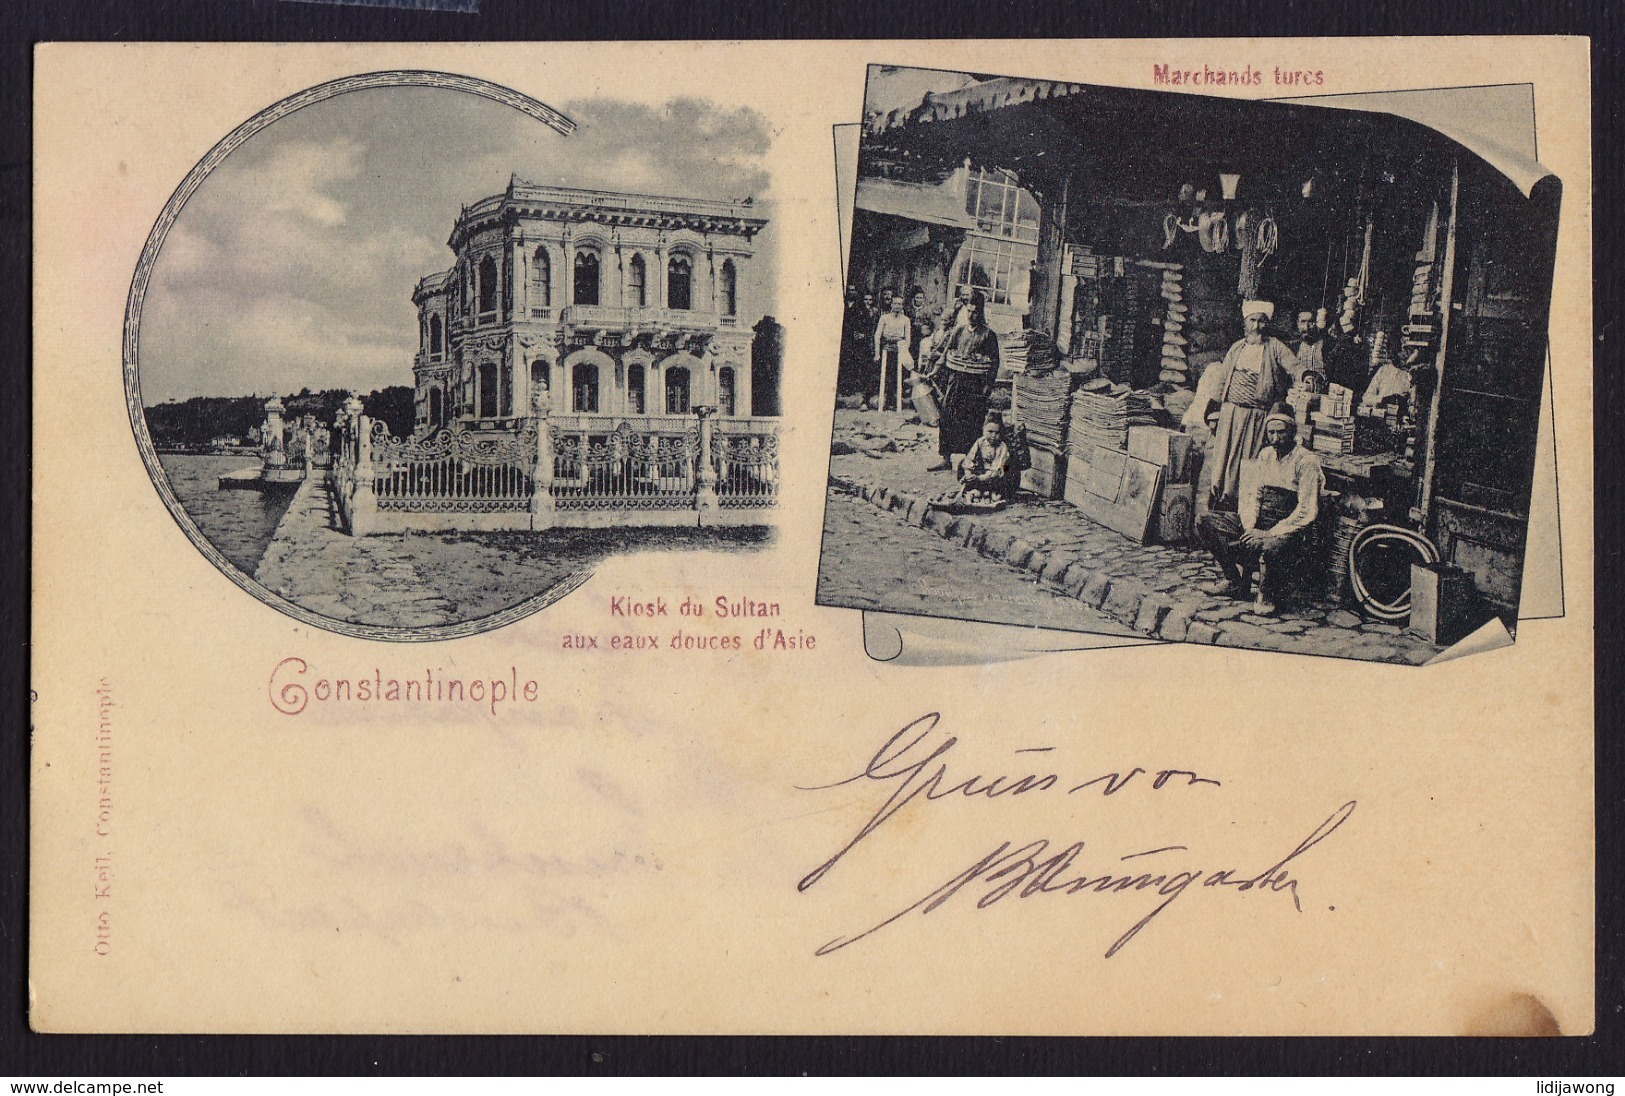 Marchands turcs
Kiosk du Sultan
aux eaux douces d'Asie
Constantinople
Otto Keil, Constantinople
Gruss von
Baumgarten.
www.delcampe.net
lidijawong